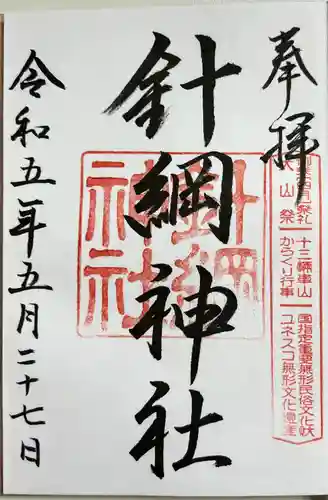 奉拝
犬山祭
十三輌車山
からくり行事
国指定重要無形民俗文化財
ユネスコ無形文化遺産
針綱神社
針綱
神社
令和五年五月二十七日